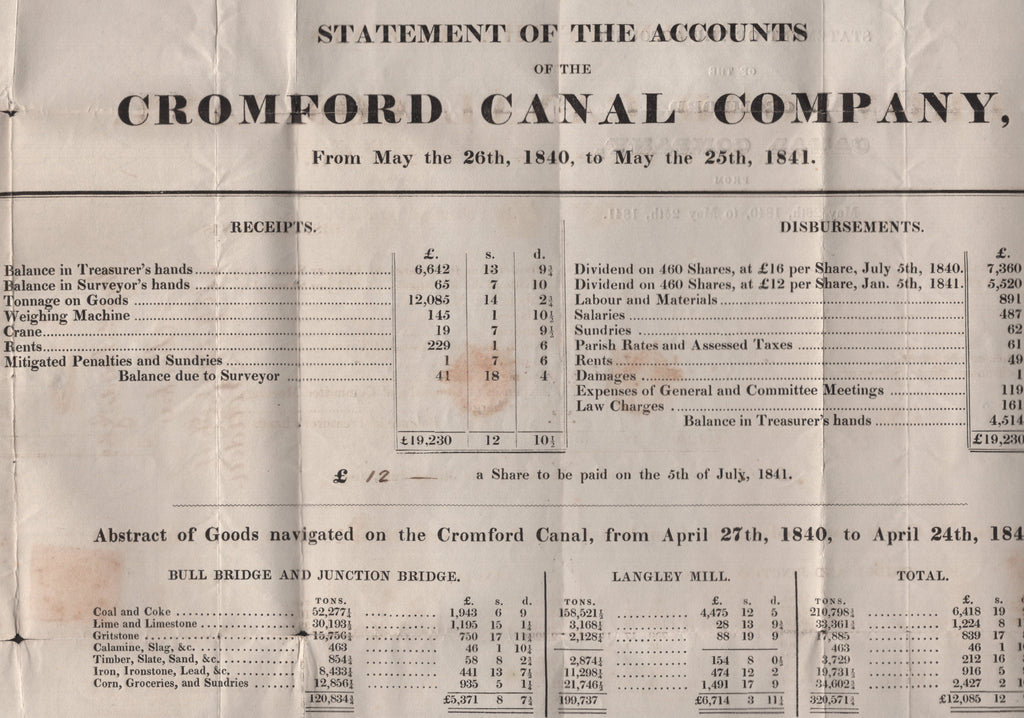 STATEMENT OF THE ACCOUNTS
OF THE
CROMFORD CANAL COMPANY,
From May the 26th, 1840, to May the 25th, 1841.
RECEIPTS.
£. s. d.
Balance in Treasurer's hands 6,642 13 9¾
Balance in Surveyor's hands 65 7 10
Tonnage on Goods 12,085 14 2¾
Weighing Machine 145 1 10½
Crane 19 7 9½
Rents 229 1 6
Mitigated Penalties and Sundries 1 7 6
Balance due to Surveyor 41 18 4
£19,230 12 10½
DISBURSEMENTS.
£.
Dividend on 460 Shares, at £16 per Share, July 5th, 1840. 7,360
Dividend on 460 Shares, at £12 per Share, Jan. 5th, 1841. 5,520
Labour and Materials 891
Salaries 487
Sundries 62
Parish Rates and Assessed Taxes 61
Rents 49
Damages 1
Expenses of General and Committee Meetings 119
Law Charges 161
Balance in Treasurer's hands 4,514
£19,230
£ 12 — a Share to be paid on the 5th of July, 1841.
Abstract of Goods navigated on the Cromford Canal, from April 27th, 1840, to April 24th, 184
BULL BRIDGE AND JUNCTION BRIDGE. LANGLEY MILL. TOTAL.
TONS. £. s. d. TONS. £. s. d. TONS. £. s.
Coal and Coke 52,277¼ 1,943 6 9 158,521½ 4,475 12 5 210,798¾ 6,418 19
Lime and Limestone 30,193½ 1,195 15 1¼ 3,168¼ 28 13 9¾ 33,361¾ 1,224 8
Gritstone 15,756½ 750 17 11¾ 2,128½ 88 19 9 17,885 839 17
Calamine, Slag, &c. 463 46 1 10½ 463 46 1
Timber, Slate, Sand, &c. 854¾ 58 8 2¾ 2,874¼ 154 8 0½ 3,729 212 16
Iron, Ironstone, Lead, &c. 8,433¼ 441 13 7½ 11,298¼ 474 12 2 19,731½ 916 5
Corn, Groceries, and Sundries 12,856¼ 935 5 1¼ 21,746½ 1,491 17 9 34,602¾ 2,427 2
120,834¾ £5,371 8 7¾ 199,737 £6,714 3 11¼ 320,571¾ £12,085 12